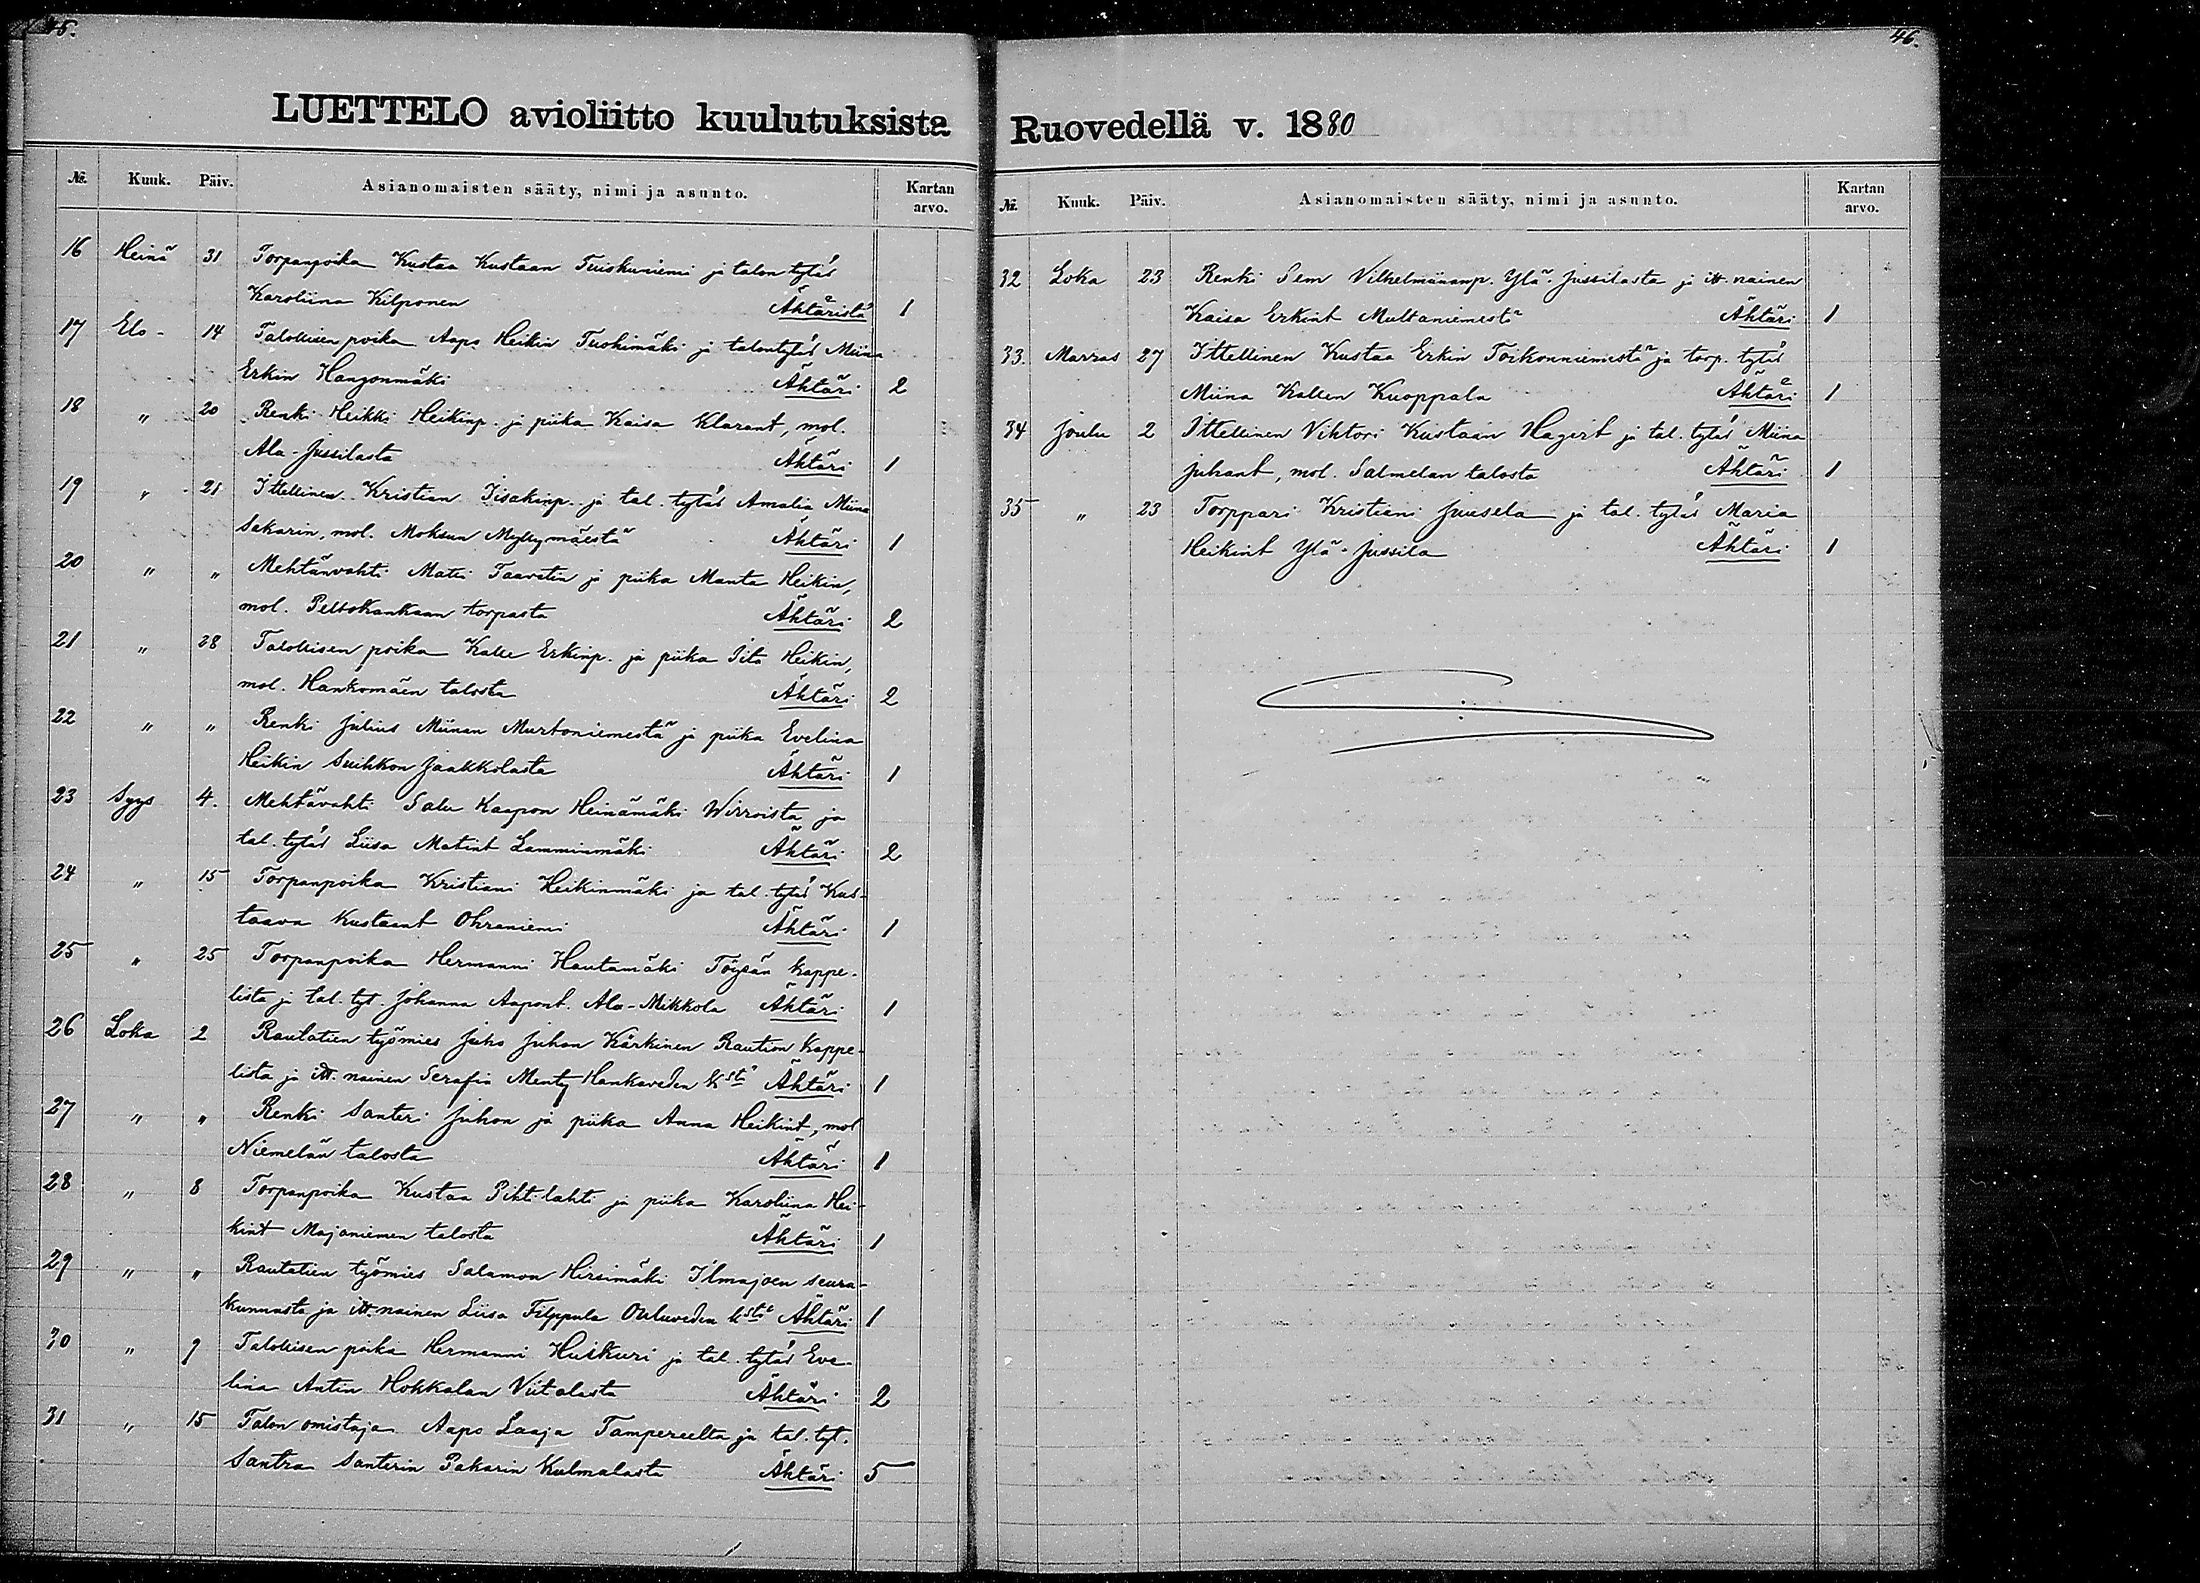 45.
LUETTELO avioliitto kuulutuksista
№. Kuuk. Päiv. Asianomaisten sääty, nimi ja asunto. Kartan arvo.
16 Heinä 31 Torpanpoika Kustaa Kustaan Tuiskuniemi ja talon tytär
Karoliina Kilponen Ähtäristä 1
17 Elo- 14 Talollisen poika Aapo Heikin Tuohimäki ja talontytär Miina
Erkin Hangonmäki Ähtäri 2
18 " 20 Renki Heikki Heikinp. ja piika Kaisa Klarant, mol.
Ala-Jussilasta Ähtäri 1
19 " 21 Ittellinen Kristian Iisakinp. ja tal. tytär Amalia Miina
Sakarin, mol. Moksun Myllymäestä Ähtäri 1
20 " " Mehtänvahti Matti Taavetin ja piika Manta Heikin,
mol. Peltokankaan torpasta Ähtäri 2
21 " 28 Talollisen poika Kalle Erkinp. ja piika Iita Heikin,
mol. Hankomäen talosta Ähtäri 2
22 " " Renki Julius Miinan Murtoniemestä ja piika Evelina
Heikin Suihkon Jaakkolasta Ähtäri 1
23 Syys 4. Mehtävahti Salu Kaapon Heinämäki Wirroista ja
tal. tytär Liisa Matint Lamminmäki Ähtäri 2
24 " 15 Torpanpoika Kristiani Heikinmäki ja tal. tytär Kus-
taava Kustaant Ohraniemi Ähtäri 1
25 " 25 Torpanpoika Hermanni Hautamäki Töysän kappe-
lista ja tal. tyt. Johanna Aapont. Ala-Mikkola Ähtäri 1
26 Loka 2 Rautatien työmies Juho Juhan Kärkinen Raution kappe-
lista ja itt. nainen Serafia Menty Hankaveden kstä Ähtäri 1
27 " " Renki Santeri Juhon ja piika Anna Heikint, mol
Niemelän talosta Ähtäri 1
28 " 8 Torpanpoika Kustaa Pihtilahti ja piika Karoliina Hei-
kint Majaniemen talosta Ähtäri 1
29 " " Rautatien työmies Salamon Hirsimäki Ilmajoen seura-
kunnasta ja itt. nainen Liisa Filppula Ouluveden kstä Ähtäri 1
30 " 9 Talollisen poika Hermanni Huskuri ja tal. tytär Eve-
lina Antin Hokkalan Viitalasta Ähtäri 2
31 " 15 Talon omistaja Aapo Laaja Tampereelta ja tal. tyt.
Santra Santerin Pakarin Kulmalasta Ähtäri 5
46.
Ruovedellä v. 1880
№. Kuuk. Päiv. Asianomaisten sääty, nimi ja asunto. Kartan arvo.
32 Loka 23 Renki Sem Vilhelmiinanp. Ylä-Jussilasta ja itt. nainen
Kaisa Erkint Multaniemestä Ähtäri 1
33. Marras 27 Ittellinen Kustaa Erkin Torkonniemestä ja torp. tytär
Miina Kallen Kuoppala Ähtäri 1
34 Joulu 2 Ittellinen Vihtori Kustaan Hagert ja tal. tytär Miina
Juhant, mol. Salmelan talosta Ähtäri 1
35 " 23 Torppari Kristiani Juusela ja tal. tytär Maria
Heikint Ylä-Jussila Ähtäri 1